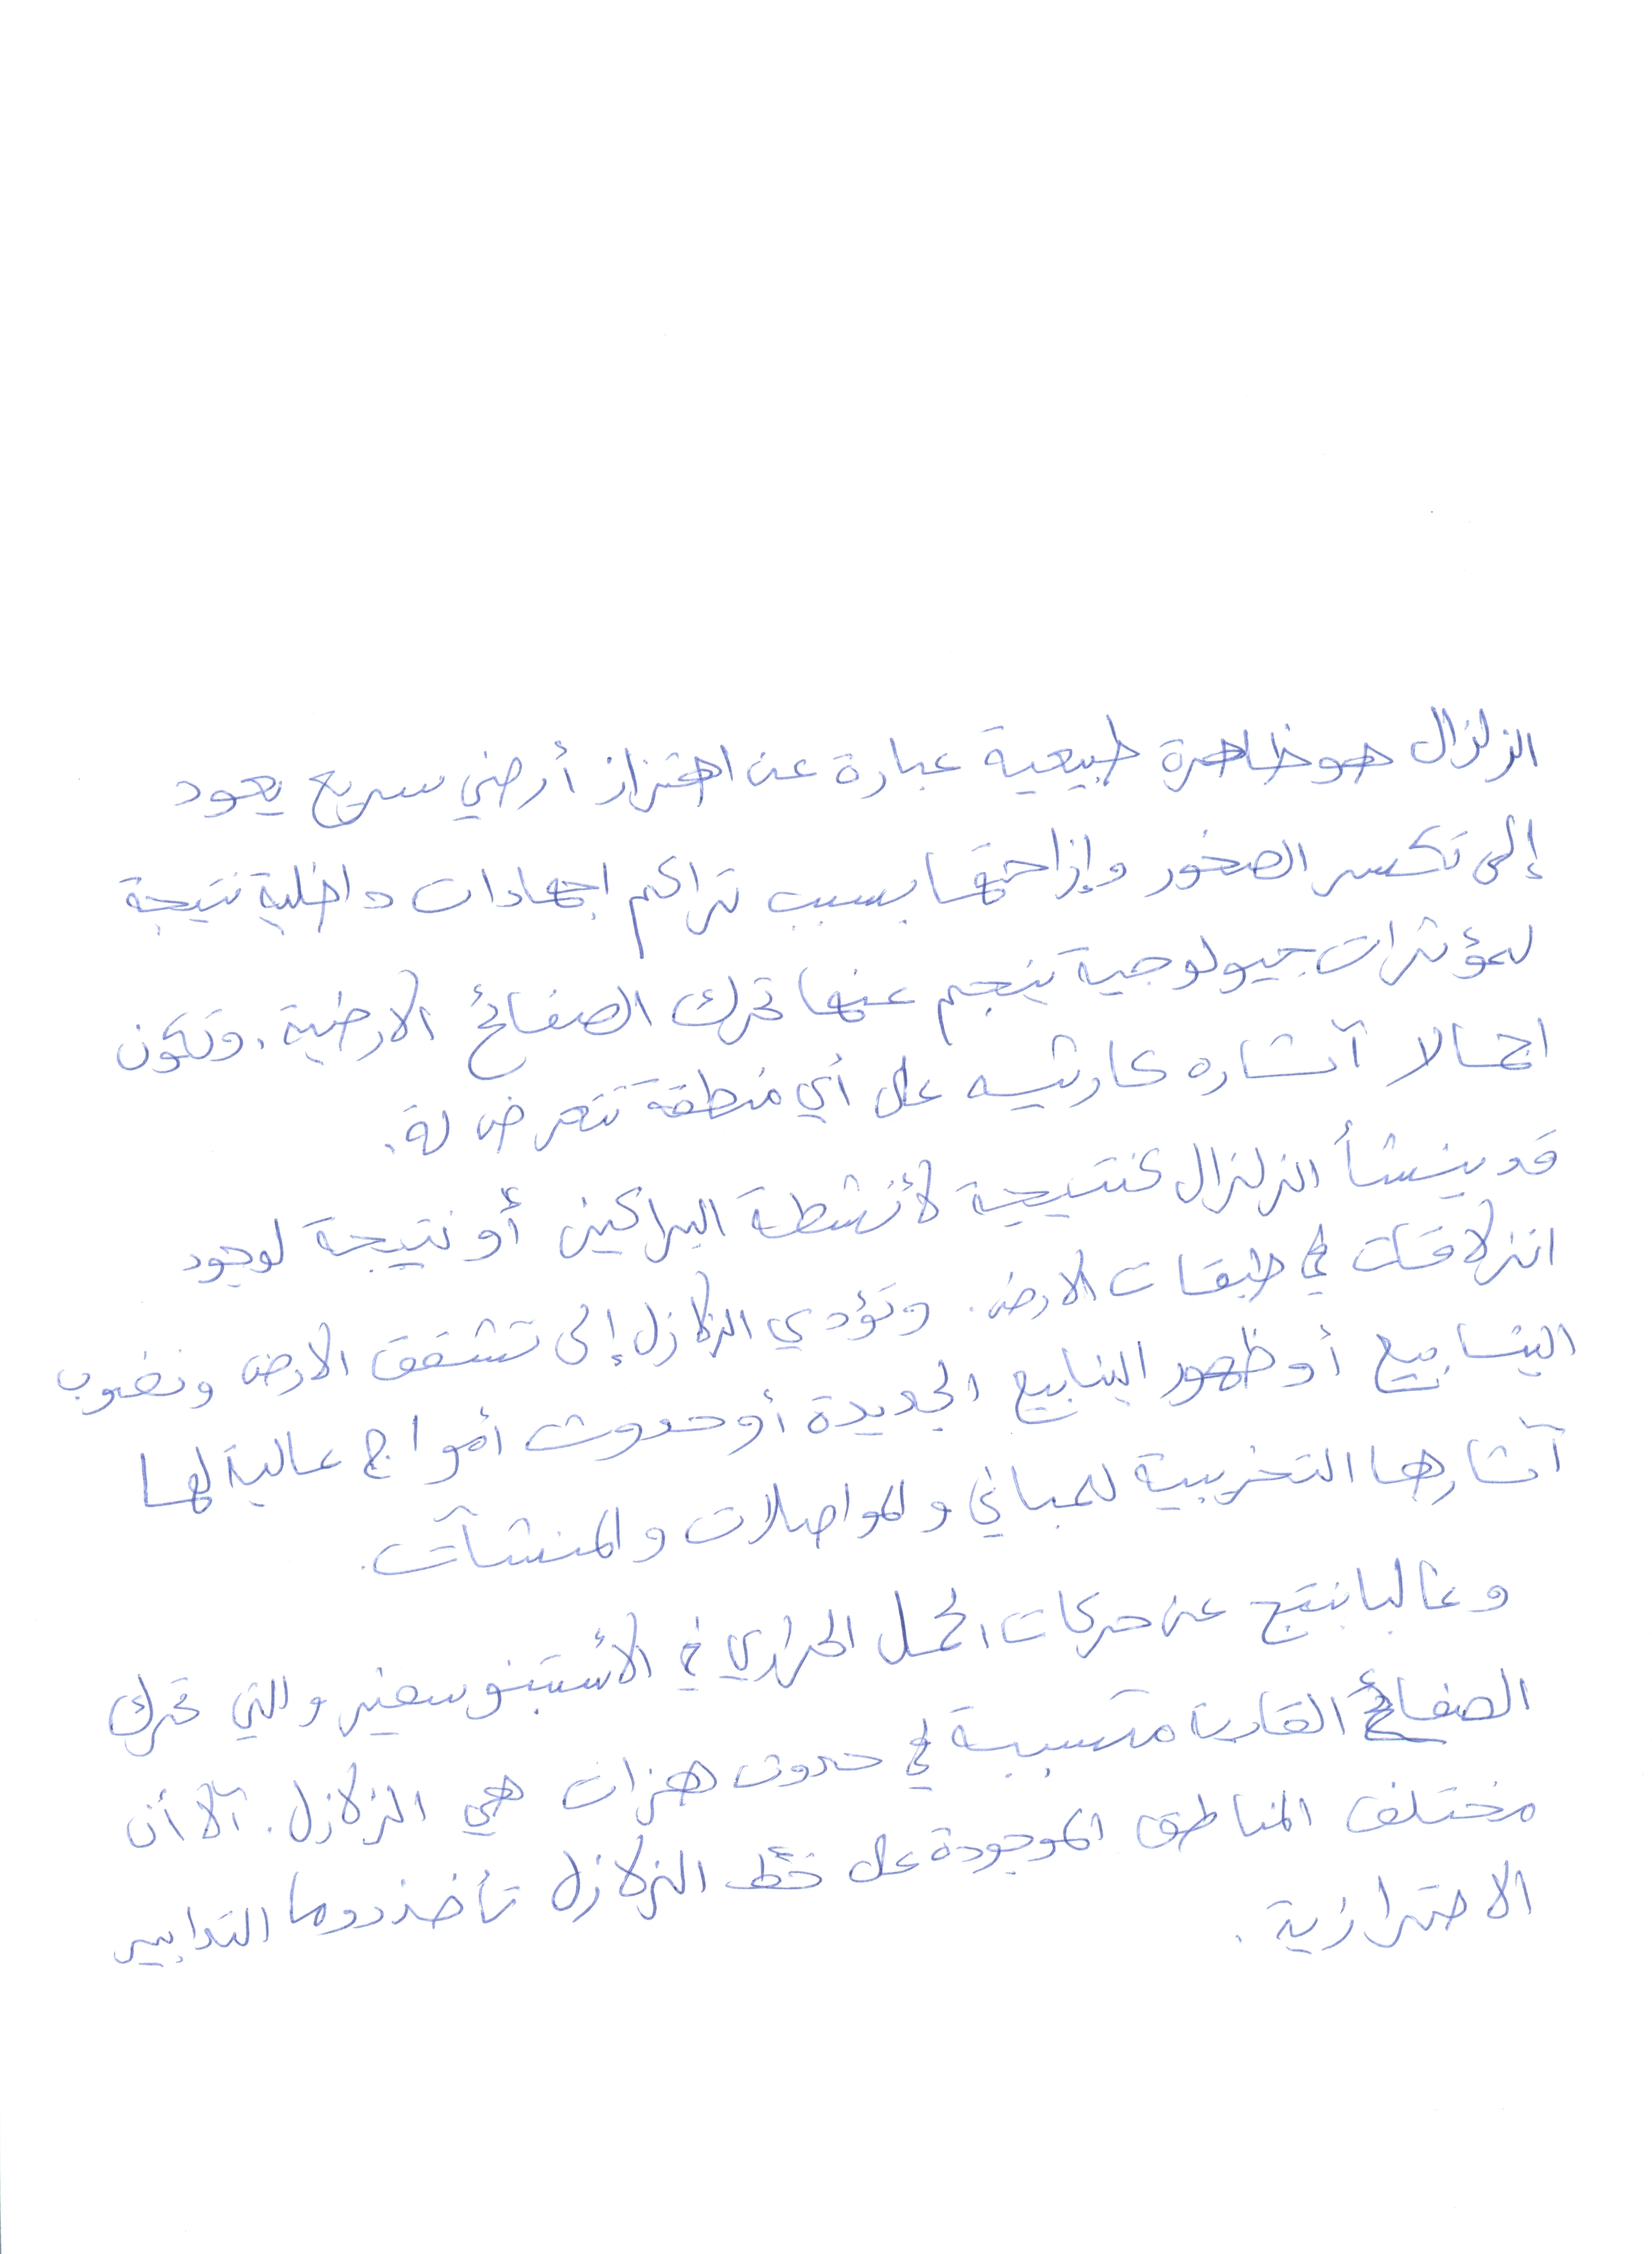 الزلزال هو ظاهرة طبيعية عبارة عن اهتزاز أرضي سريع يعود
إلى تكسر الصخور وإزاحتها بسبب تراكم اجهادات داخلية نتيجة
لمؤثرات جيولوجية ينجم عنها تحرك الصفائح الارضية. وتكون
اجمالا آثاره كارثيه على أي منطقة تتعرض لة.
قد ينشأ الزلزال كنتيجة لأنشطة البراكين أو نتيجة لوجود
انزلاقات في طبقات الارض. وتؤدي الزلازل إلى تشقق الارض ونضوب
الينابيع أو ظهور الينابيع الجديدة أو حدوث أمواج عالية لها
آثارها التخريبية للمباني والمواصلات والمنشآت.
وغالبا ينتج عن حركات الحمل الحراري في الأستينوسفير والتي تحرك
الصفائح القارية متسببة في حدوث هزات هي الزلازل. آلا أن
مختلف المناطق الموجودة على خط الزلازل تأخذ دوما التدابير
الاحترازية.